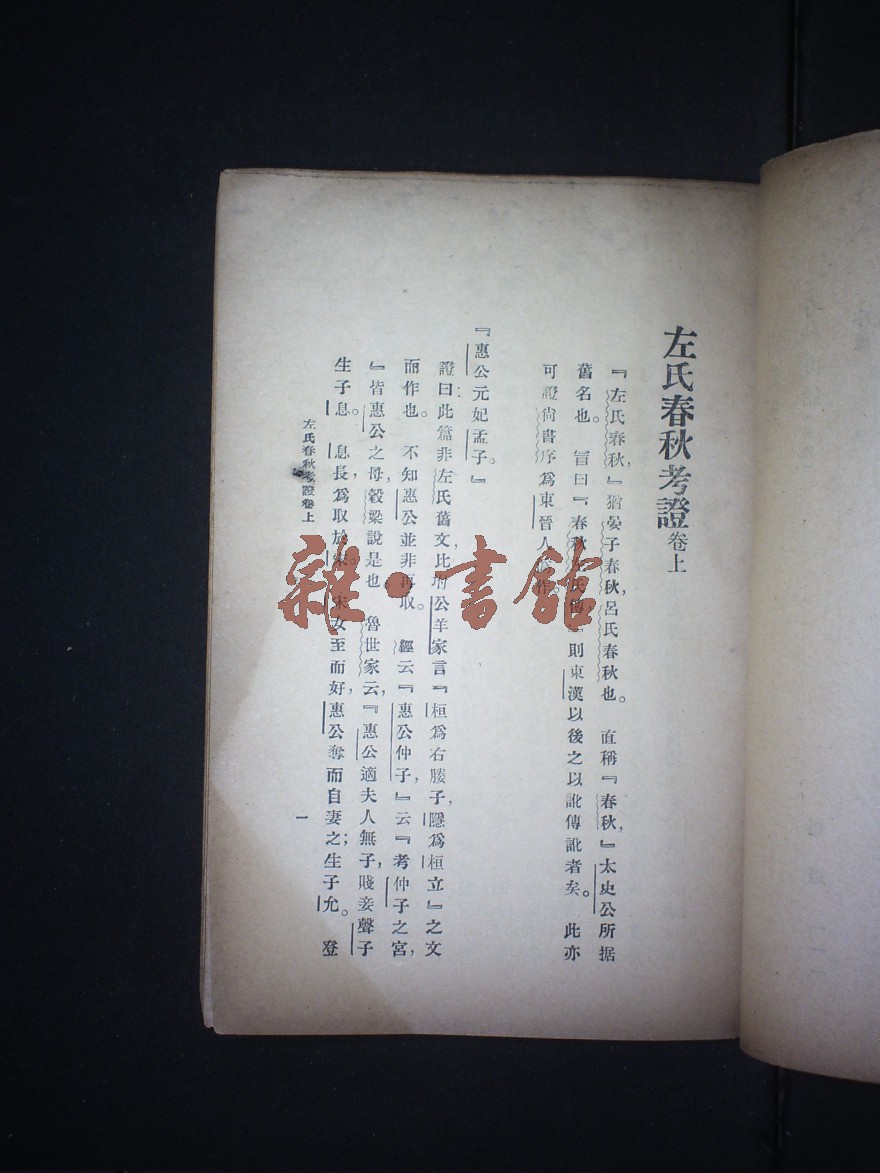 左氏春秋考證卷上
『左氏春秋,』猶晏子春秋,呂氏春秋也。 直稱『春秋,』太史公所据
舊名也。 冒曰『春秋左氏傳,』則東漢以後之以訛傳訛者矣。 此亦
可證尙書序為東晉人作。
『惠公元妃孟子。』
證曰:此篇非左氏舊文,比坿公羊家言『桓為右媵子,隱為桓立』之文
而作也。 不知惠公並非再取。 經云『惠公仲子,』云『考仲子之宮,
』皆惠公之母,穀梁說是也。 魯世家云,『惠公適夫人無子,賤妾聲子
生子息。 息長,為取於宋。 宋女至而好,惠公奪而自妻之;生子允。 登
左氏春秋考證卷上
一
雜·書館